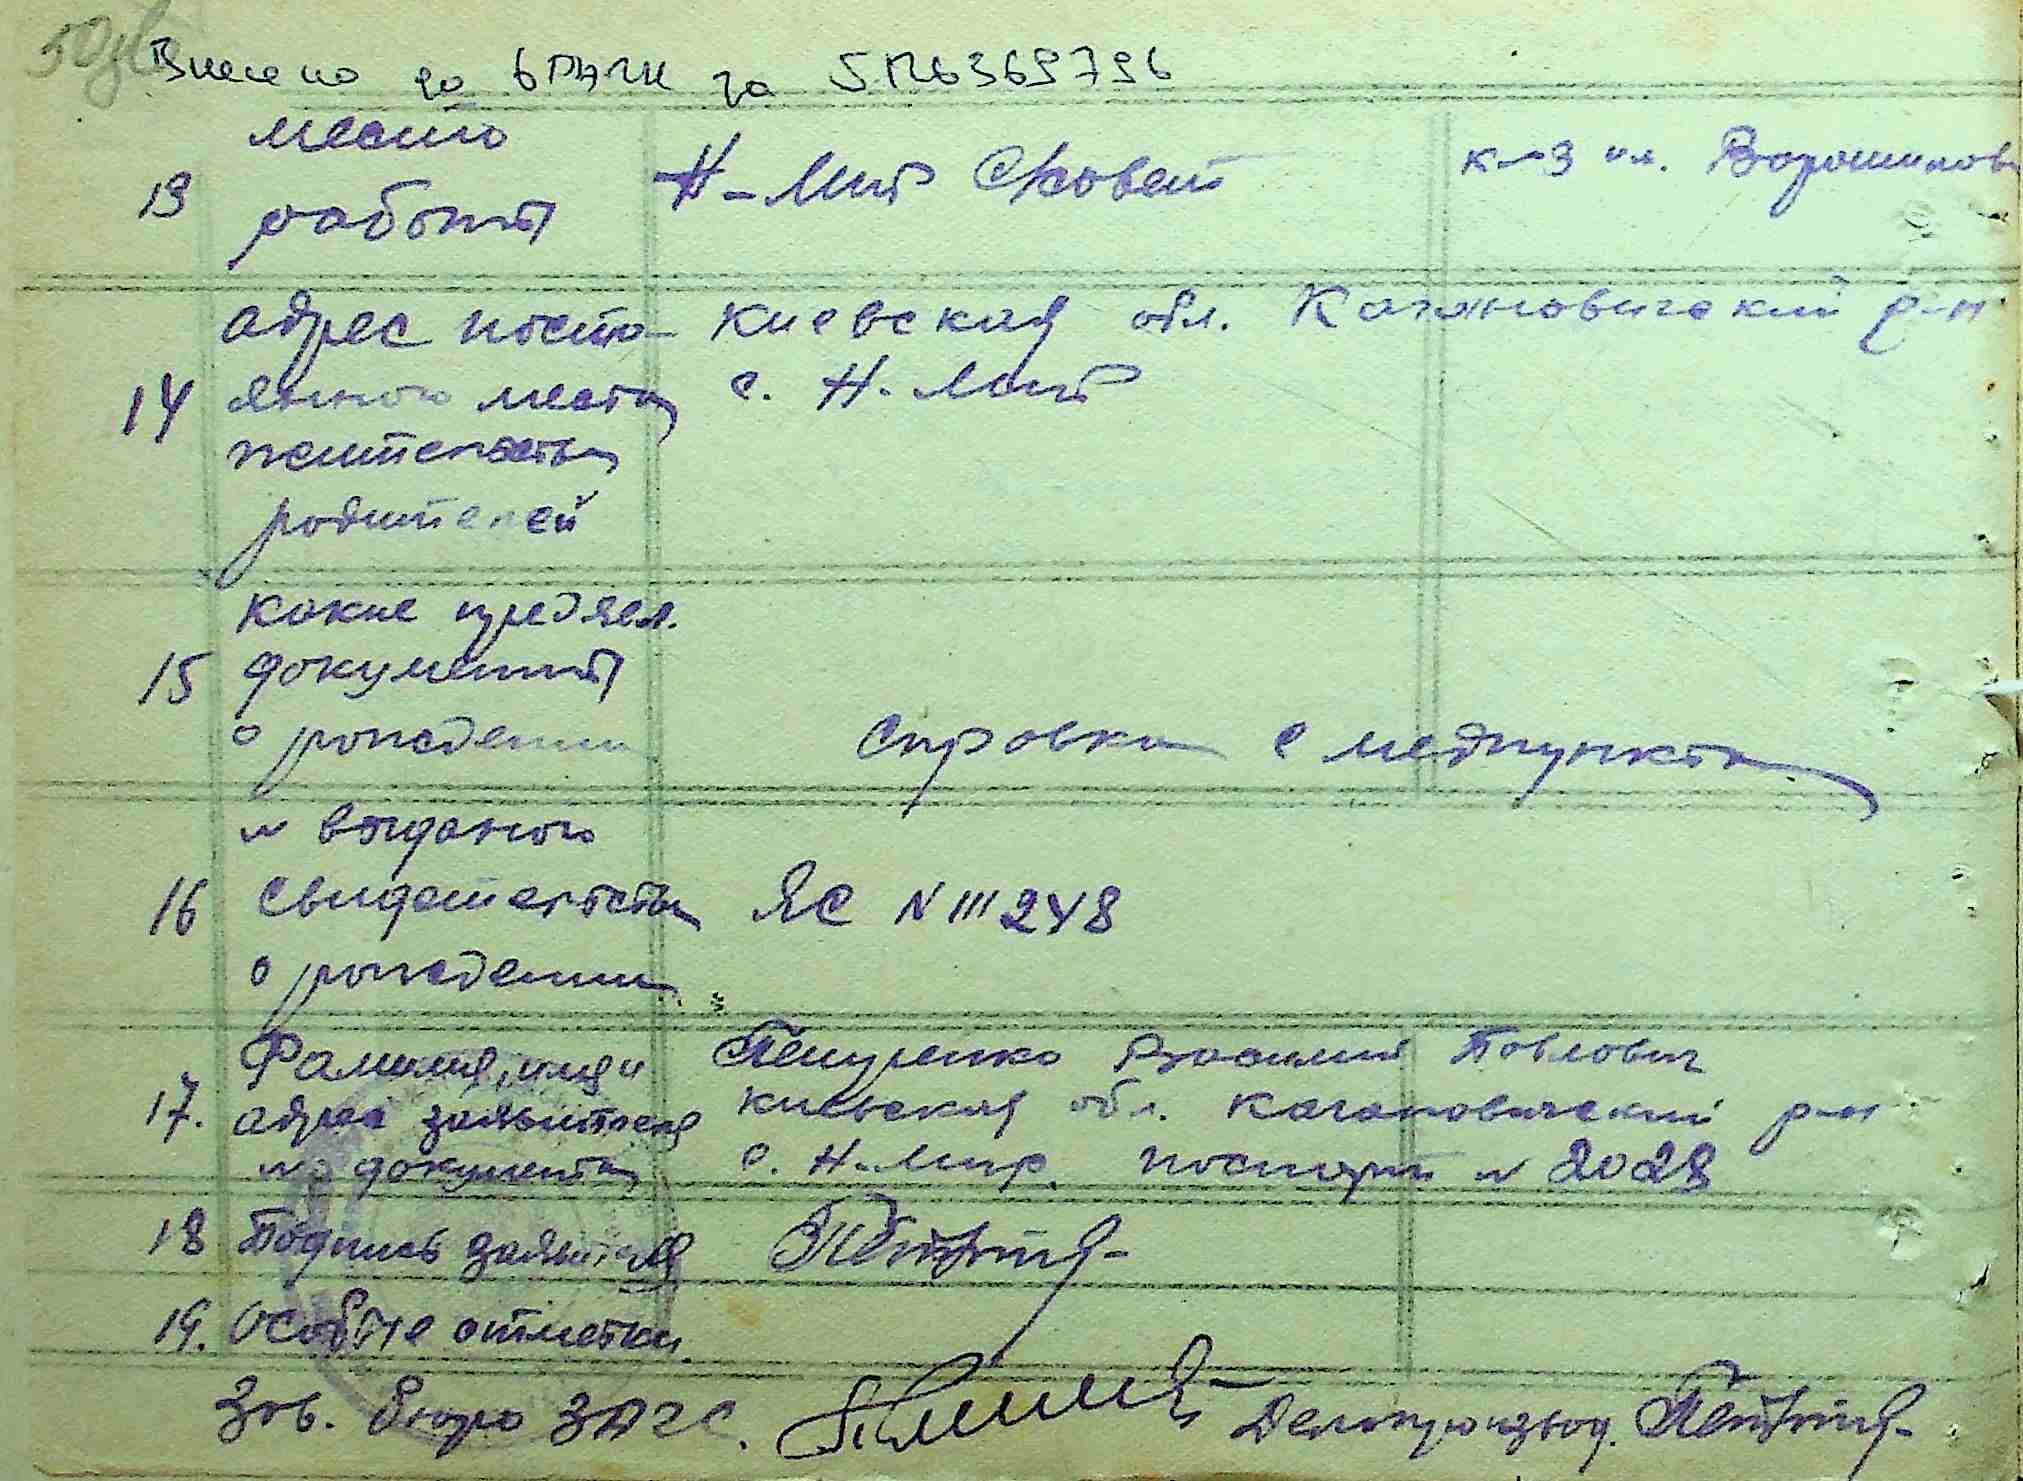 Внесено до ДРАЦС за 5126369796
13 место работы Н-Мир С/совет к-з им. Ворошилов
14 адрес посто-
янного места
жительства
родителей
Киевская обл. Кагановический р-н
с. Н. Мир
15 какие предъявл.
документы
о рождении
Справка с медпункта
16 № выданого
свидетельства
о рождении
ЯС № III 248
17. Фамилия, имя и
адрес заявителя
№ документа
Василий Павлович
Киевская обл. Кагановический р-н
с. Н-Мир. паспорт № 2028
18 Подпись заявителя
19. Особые отметки
Зав. бюро ЗАГС. Делопроизвод.